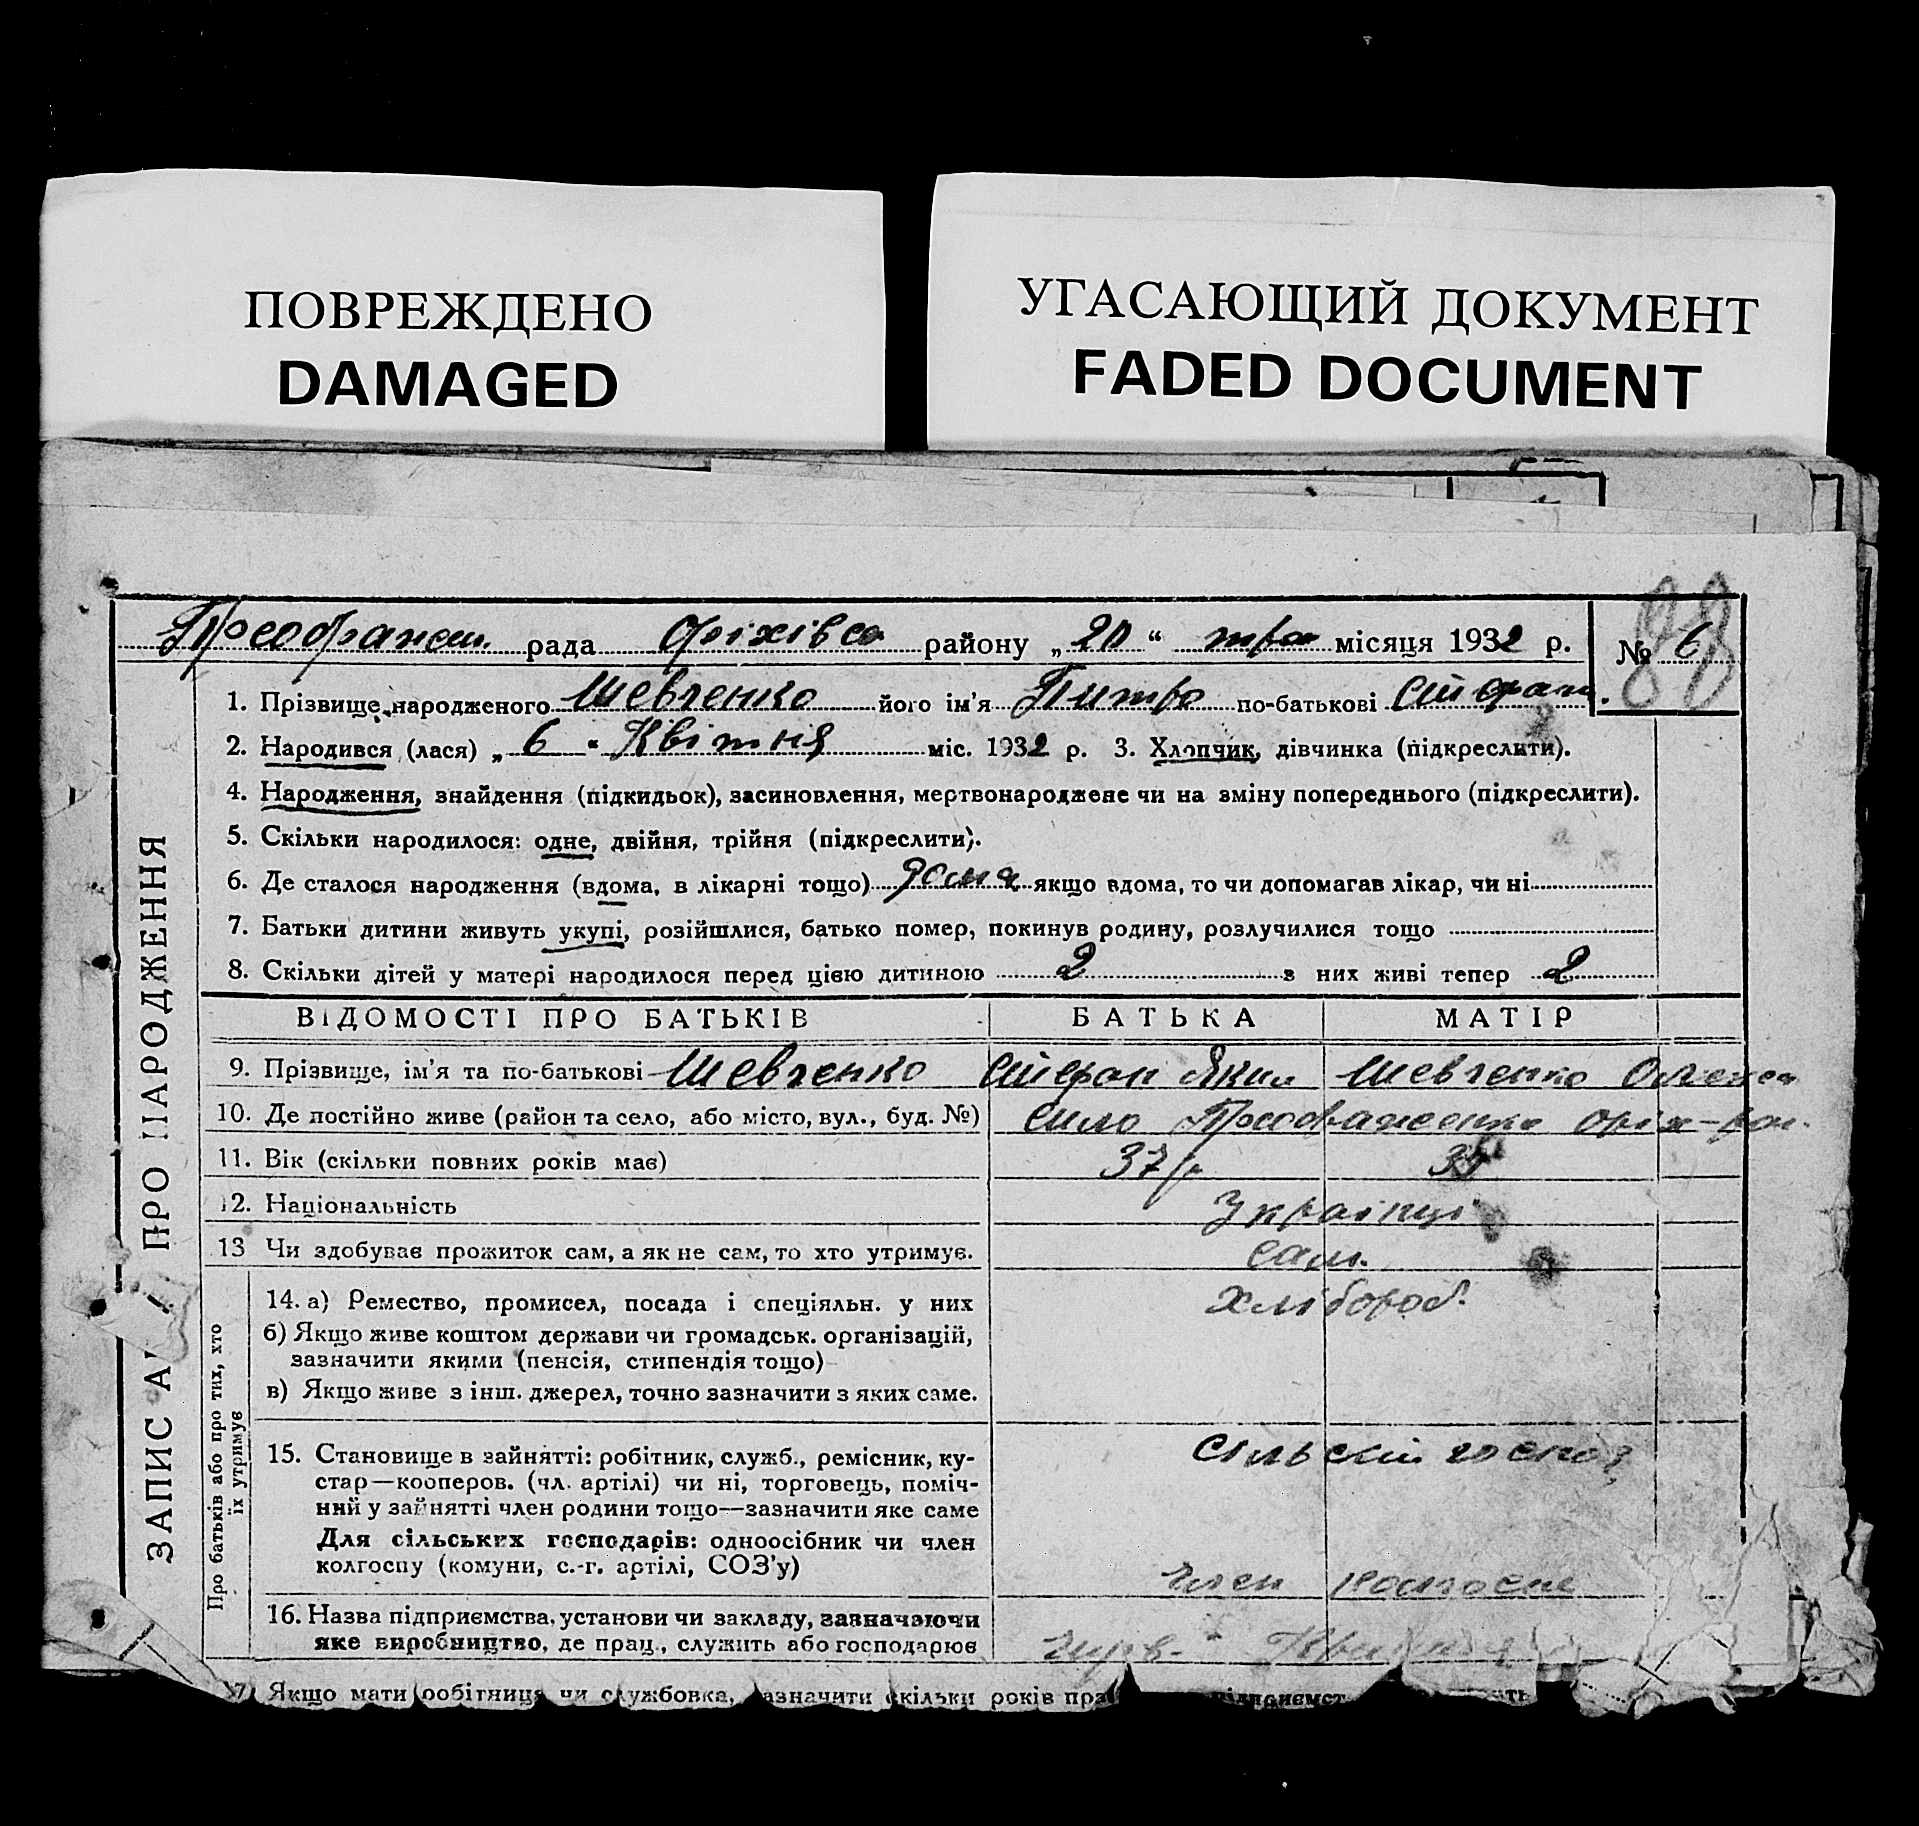 ПОВРЕЖДЕНО
DAMAGED
УГАСАЮЩИЙ ДОКУМЕНТ
FADED DOCUMENT
88
Преображен. рада Оріхівсо району „20“ тра місяця 1932 р. № 6
1. Прізвище народженого Шевченко його ім'я Питро по-батькові Стефан.
2. Народився (лася) „6“ Квітня міс. 1932 р. 3. Хлопчик, дівчинка (підкреслити).
4. Народження, знайдення (підкидьок), засиновлення, мертвонароджене чи на зміну попереднього (підкреслити).
5. Скільки народилося: одне, двійня, трійня (підкреслити).
6. Де сталося народження (вдома, в лікарні тощо) дома якщо вдома, то чи допомагав лікар, чи ні
7. Батьки дитини живуть укупі, розійшлися, батько помер, покинув родину, розлучилися тощо
8. Скільки дітей у матері народилося перед цією дитиною 2 з них живі тепер 2
ВІДОМОСТІ ПРО БАТЬКІВ БАТЬКА МАТІР
9. Прізвище, ім'я та по-батькові Шевченко Стефан Яким Шевченко
10. Де постійно живе (район та село, або місто, вул., буд. №) село Преображенка Оріх-рон.
11. Вік (скільки повних років має) 37 р.
12. Національність Українці
13 Чи здобуває прожиток сам, а як не сам, то хто утримує. сам.
14. а) Ремество, промисел, посада і спеціяльн. у них Хлібороб.
б) Якщо живе коштом держави чи громадськ. організацій,
зазначити якими (пенсія, стипендія тощо)
в) Якщо живе з інш. джерел, точно зазначити з яких саме.
15. Становище в зайнятті: робітник, служб., ремісник, ку-
стар—кооперов. (чл. артілі) чи ні, торговець, поміч-
ний у зайнятті член родини тощо—зазначити яке саме
Для сільських господарів: одноосібник чи член
колгоспу (комуни, с.-г. артілі, СОЗ'у)
сільский госпо
член
16. Назва підприємства, установи чи закладу, зазначаючи
яке виробництво, де прац., служить або господарює
Якщо мати робітниця чи службовка, зазначити скільки років
ЗАПИС ПРО НАРОДЖЕННЯ
Про батьків або про тих, хто
їх утримує